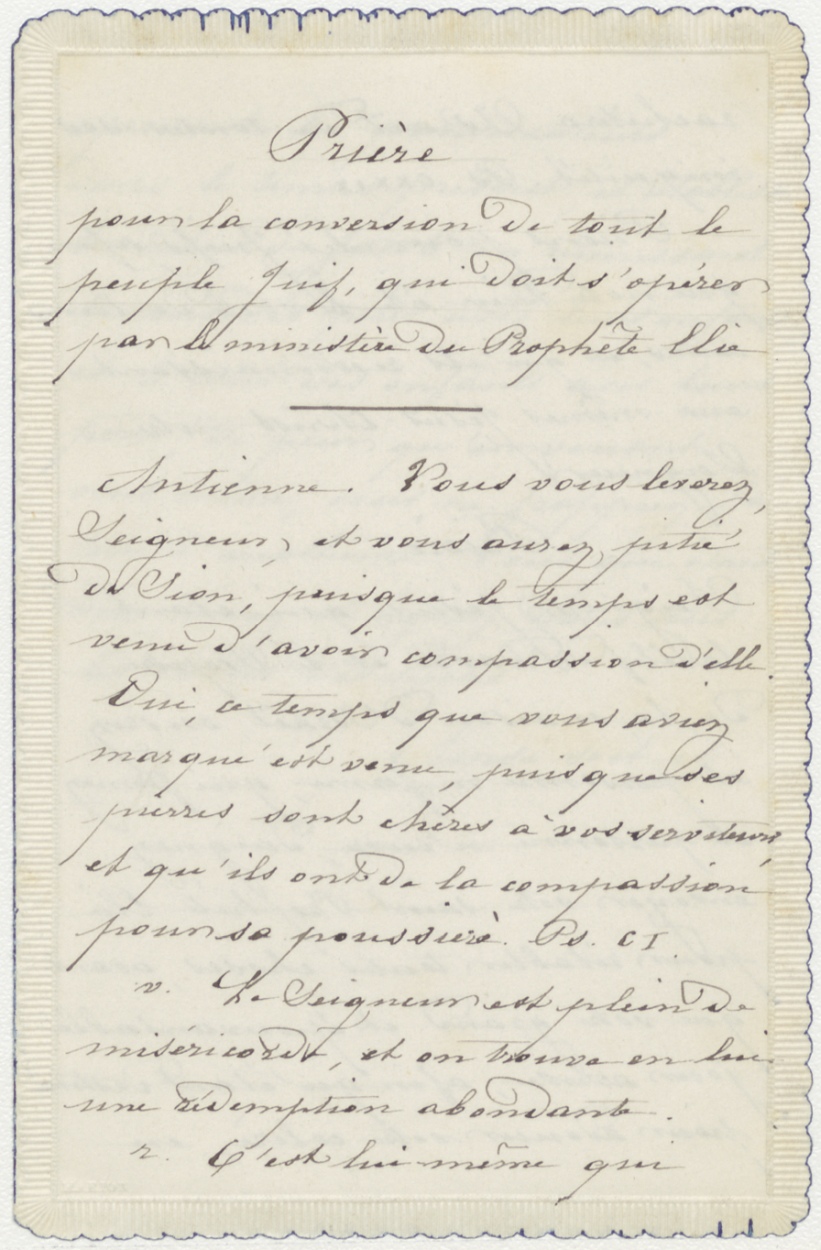 Prière
pour la conversion de tout le
peuple Juif, qui doit s'opérer
par le ministère du Prophète Elie
Antienne. Vous vous leverez,
Seigneur, et vous aurez pitié
de Sion, puisque le temps est
venu d'avoir compassion d'elle.
Oui, ce temps que vous aviez
marqué est venu, puisque ses
pierres sont chères à vos serviteurs,
et qu'ils ont de la compassion
pour sa poussière. Ps. CI.
v. Le Seigneur est plein de
miséricorde, et on trouve en lui
une rédemption abondante.
r. C'est lui-même qui